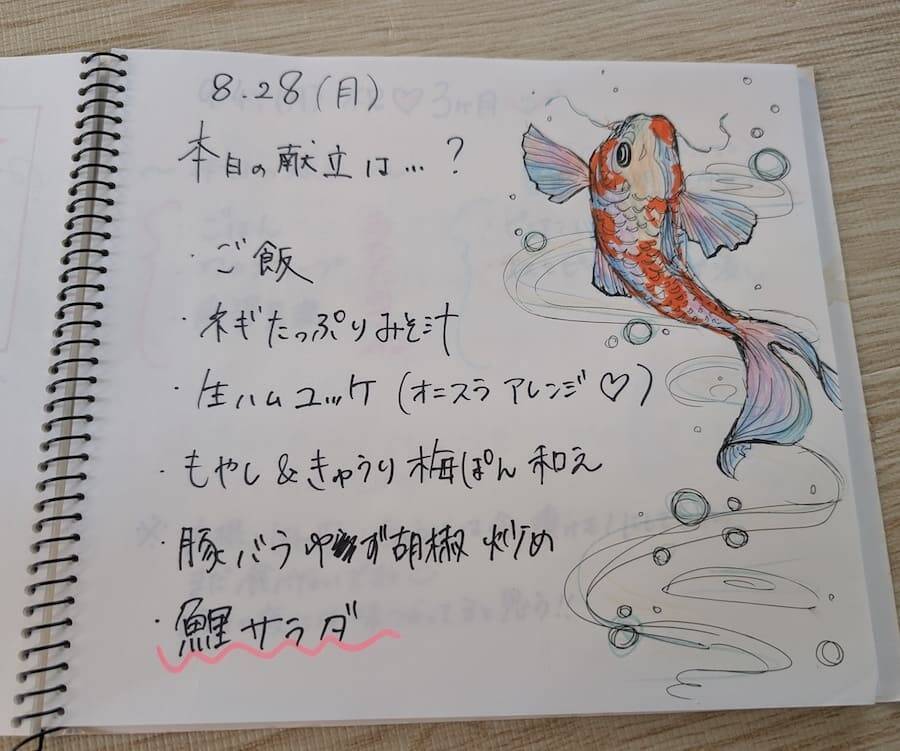 8.28(月)
本日の献立は…?
・ご飯
・ネギたっぷりみそ汁
・生ハムユッケ(オニスラアレンジ♡)
・もやし&きゅうり梅ぽん和え
・豚バラゆず胡椒炒め
・鯉サラダ